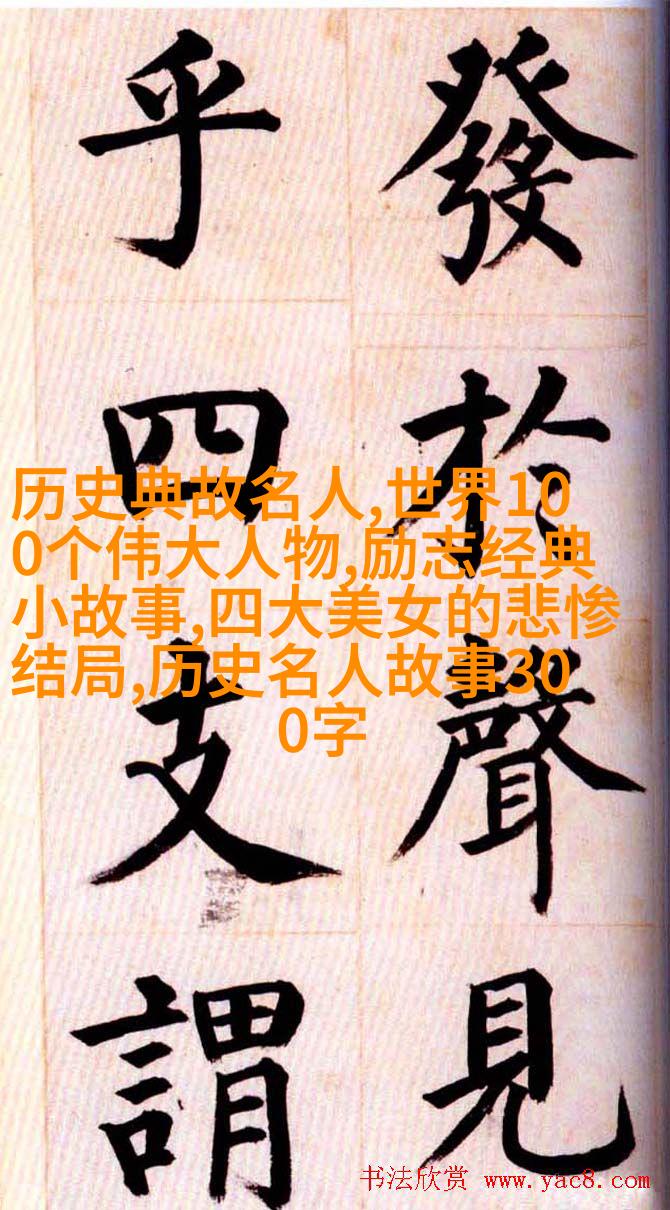 發於聲見
乎四支謂
历史典故名人,世界10
0个伟大人物,励志经典
小故事,四大美女的悲惨
结局,历史名人故事30
0字
书法欣赏 www.yac8.com